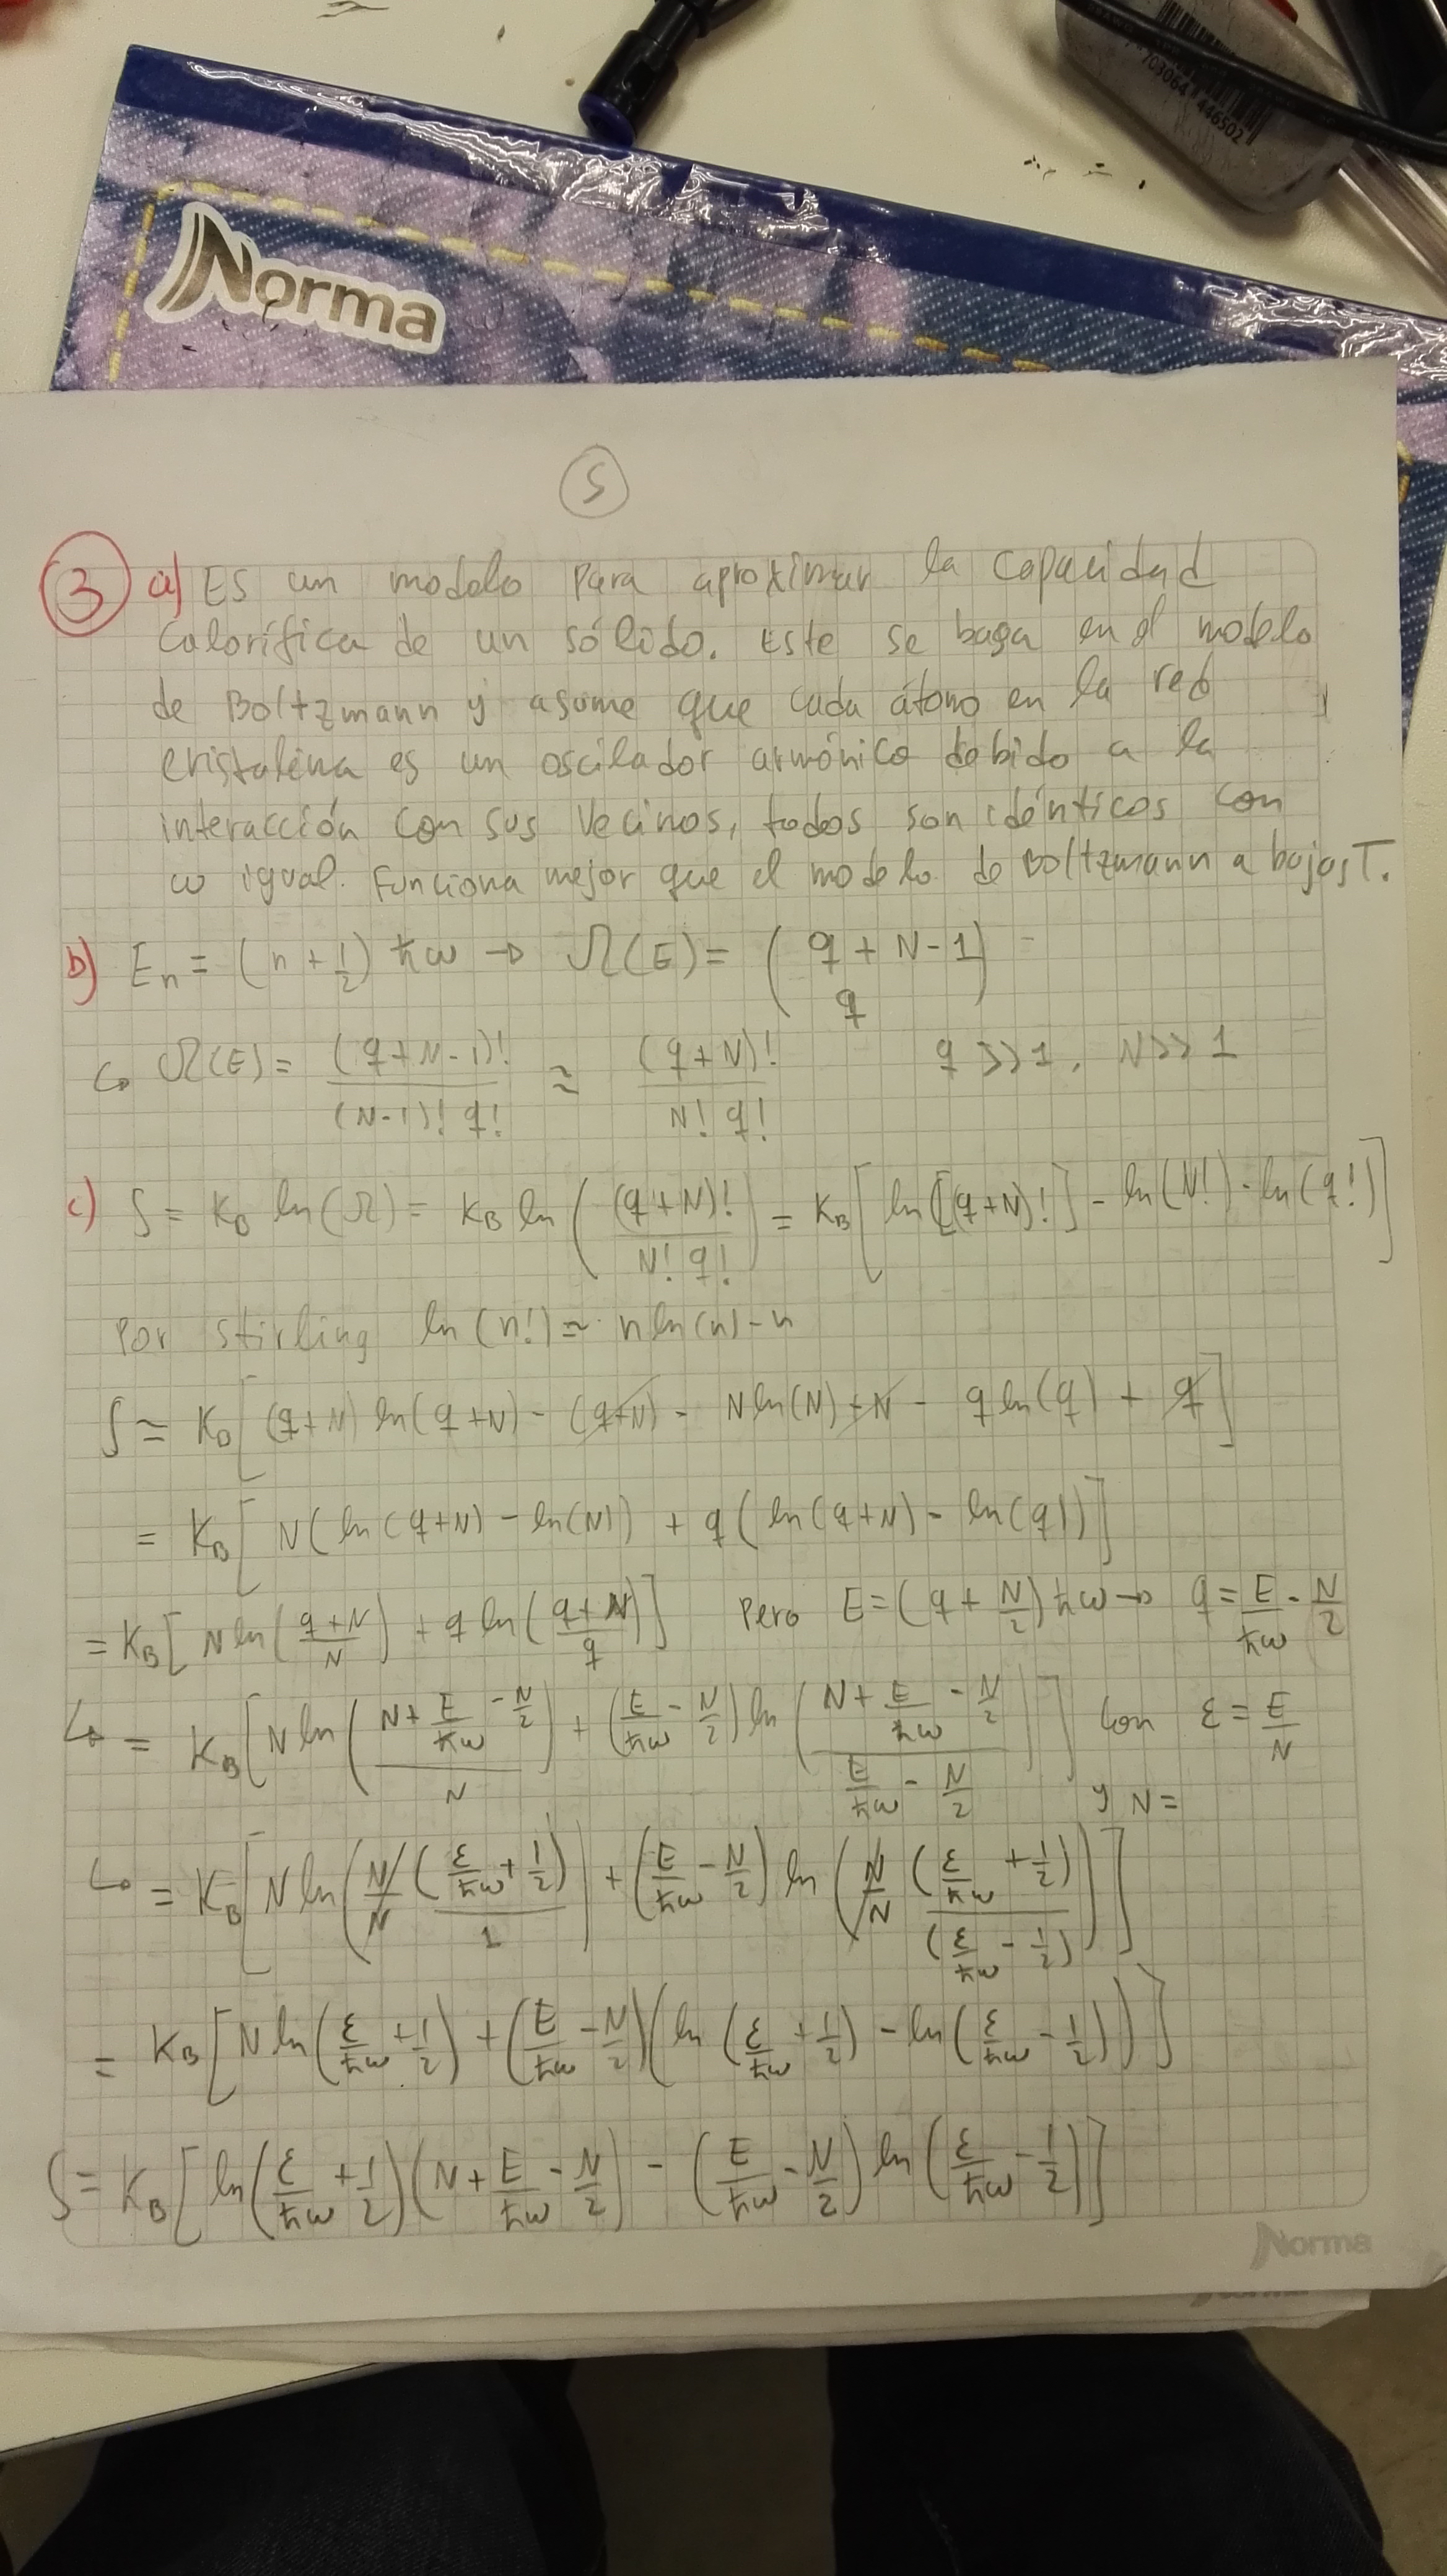 7 703064 446502
Norma
5
3 a) Es un modelo para aproximar la capacidad
calorífica de un sólido. Este se basa en el modelo
de Boltzmann y asume que cada átomo en la red
cristalina es un oscilador armónico debido a la
interacción con sus vecinos, todos son idénticos con
ω igual. Funciona mejor que el modelo de Boltzmann a bajas T.
b) En = (n + 1/2) ħω → Ω(E) = (q + N - 1 / q)
↳ Ω(E) = (q + N - 1)! / (N-1)! q! ≈ (q + N)! / N! q! q >> 1, N >> 1
c) S = KB ln(Ω) = KB ln((q + N)! / N! q!) = KB [ln[(q+N)!] - ln(N!) - ln(q!)]
Por stirling ln(n!) ≈ n ln(n) - n
S ≈ KB [(q+N) ln(q+N) - (q+N) - N ln(N) + N - q ln(q) + q]
= KB [N(ln(q+N) - ln(N)) + q(ln(q+N) - ln(q))]
= KB [N ln((q+N)/N) + q ln((q+N)/q)] Pero E = (q + N/2) ħω → q = E/ħω - N/2
↳ = KB [N ln((N + E/ħω - N/2)/N) + (E/ħω - N/2) ln((N + E/ħω - N/2)/(E/ħω - N/2))] con ε = E/N
y N =
↳ = KB [N ln(N/N (ε/ħω + 1/2)/1) + (E/ħω - N/2) ln(N/N (ε/ħω + 1/2)/(ε/ħω - 1/2))]
= KB [N ln(ε/ħω + 1/2) + (E/ħω - N/2)(ln(ε/ħω + 1/2) - ln(ε/ħω - 1/2))]
S = KB [ln(ε/ħω + 1/2)(N + E/ħω - N/2) - (E/ħω - N/2) ln(ε/ħω - 1/2)]
Norma